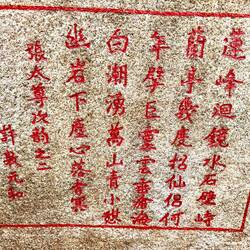 蓮峰迴鏡水石壁峙
蘭亭幾度招仙侶何
年擘巨靈雲垂海
白潮湧萬山青小憩
幽岩下塵心落有冥
張太尊次韵之二
許教元和